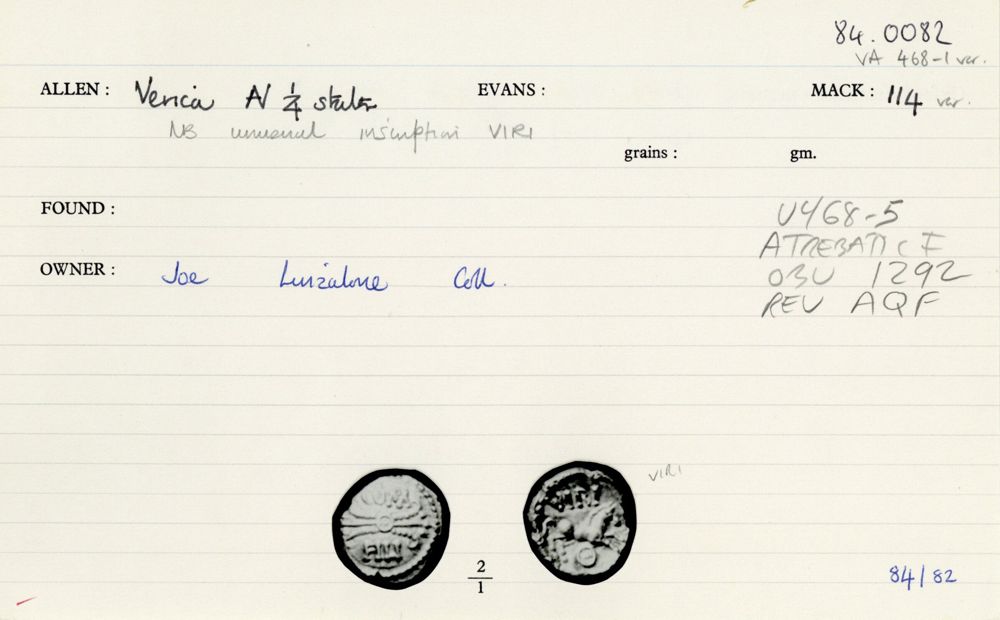 84.0082
VA 468-1 var.
ALLEN : Verica AV 1/4 stater EVANS : MACK : 114 var.
NB unusual inscription VIRI
grains : gm.
FOUND : V468-5
ATREBATIC F
OWNER : Joe Coll.
OBV 1292
REV AQF
VIRI
VIRI
2
1
84/82